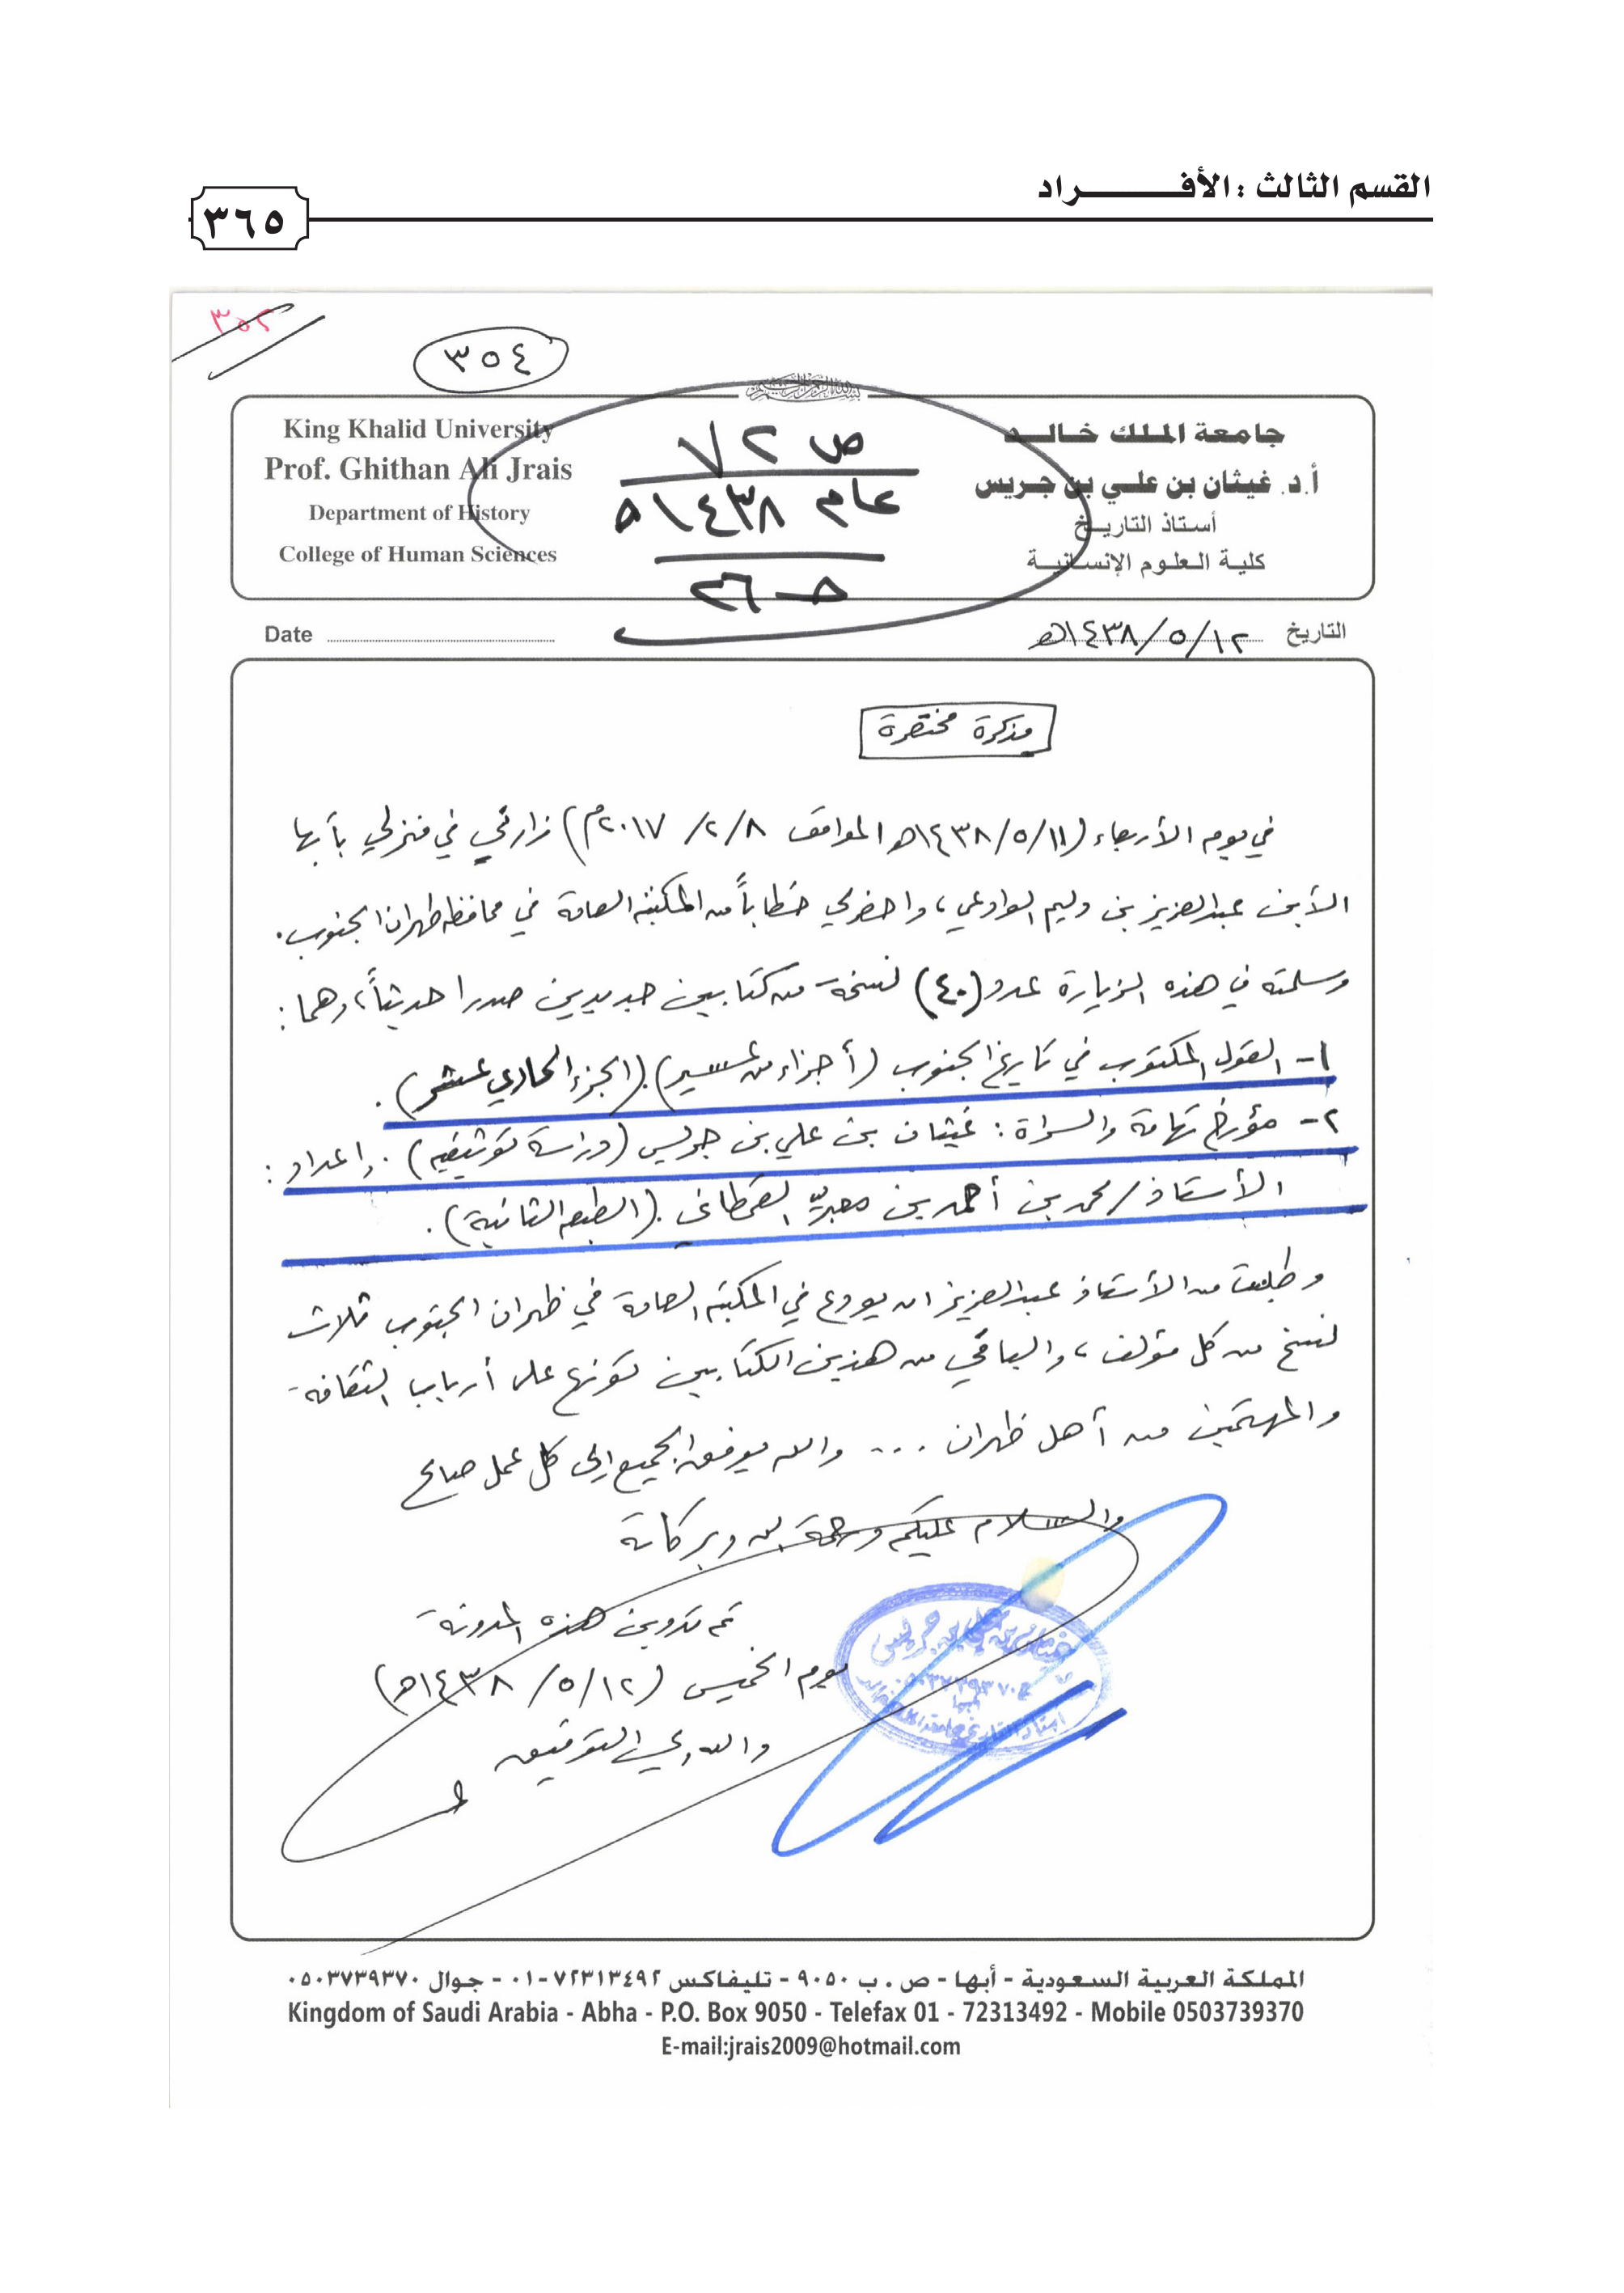 القسم الثالث : الأفـــــــــراد
٣٦٥
٣٥٢
٣٥٤
بسم الله الرحمن الرحيم
King Khalid University
Prof. Ghithan Ali Jrais
Department of History
College of Human Sciences
ص ٧٢
عام ١٤٣٨هـ
حـ ٢٦
جامعة الملك خالد
أ.د. غيثان بن علي بن جريس
أستاذ التاريخ
كلية العلوم الإنسانية
Date
التاريخ ١٤٣٨/٥/١٢هـ
مذكرة مختصرة
في يوم الأربعاء (١٤٣٨/٥/١١هـ الموافق ٢٠١٧/٢/٨م) زارني في منزلي بأبها
الأبن عبدالعزيز بن وليم الوادعي، واحضر لي خطاباً من المكتبة العامة في محافظة ظهران الجنوب.
وسلمته في هذه الزيارة عدد (٤٠) نسخة من كتابين جديدين صدرا حديثاً، وهما:
١- القول المكتوب في تاريخ الجنوب (أجزاء من عسير). (الجزء الحادي عشر).
٢- مؤرخ تهامة والسراة: غيثان بن علي بن جريس (دراسة توثيقية). إعداد:
الأستاذ/ محمد بن أحمد بن معبر القحطاني. (الطبعة الثانية).
وطلبت من الأستاذ عبدالعزيز ان يودع في المكتبة العامة في ظهران الجنوب ثلاث
نسخ من كل مؤلف، والباقي من هذين الكتابين على أرباب الثقافة
والمهتمين من أهل ظهران ... والله يوفق الجميع إلى كل عمل صالح
والسلام عليكم ورحمة الله وبركاتة
تم تدوين هذه المدونة
يوم الخميس (١٤٣٨/٥/١٢هـ)
والله ولي التوفيق
غيثان بن علي بن جريس
أبها
أستاذ التاريخ بجامعة الملك خالد
المملكة العربية السعودية - أبها - ص . ب ٩٠٥٠ - تليفاكس ٧٢٣١٣٤٩٢-٠١ - جوال ٠٥٠٣٧٣٩٣٧٠
Kingdom of Saudi Arabia - Abha - P.O. Box 9050 - Telefax 01 - 72313492 - Mobile 0503739370
E-mail:jrais2009@hotmail.com